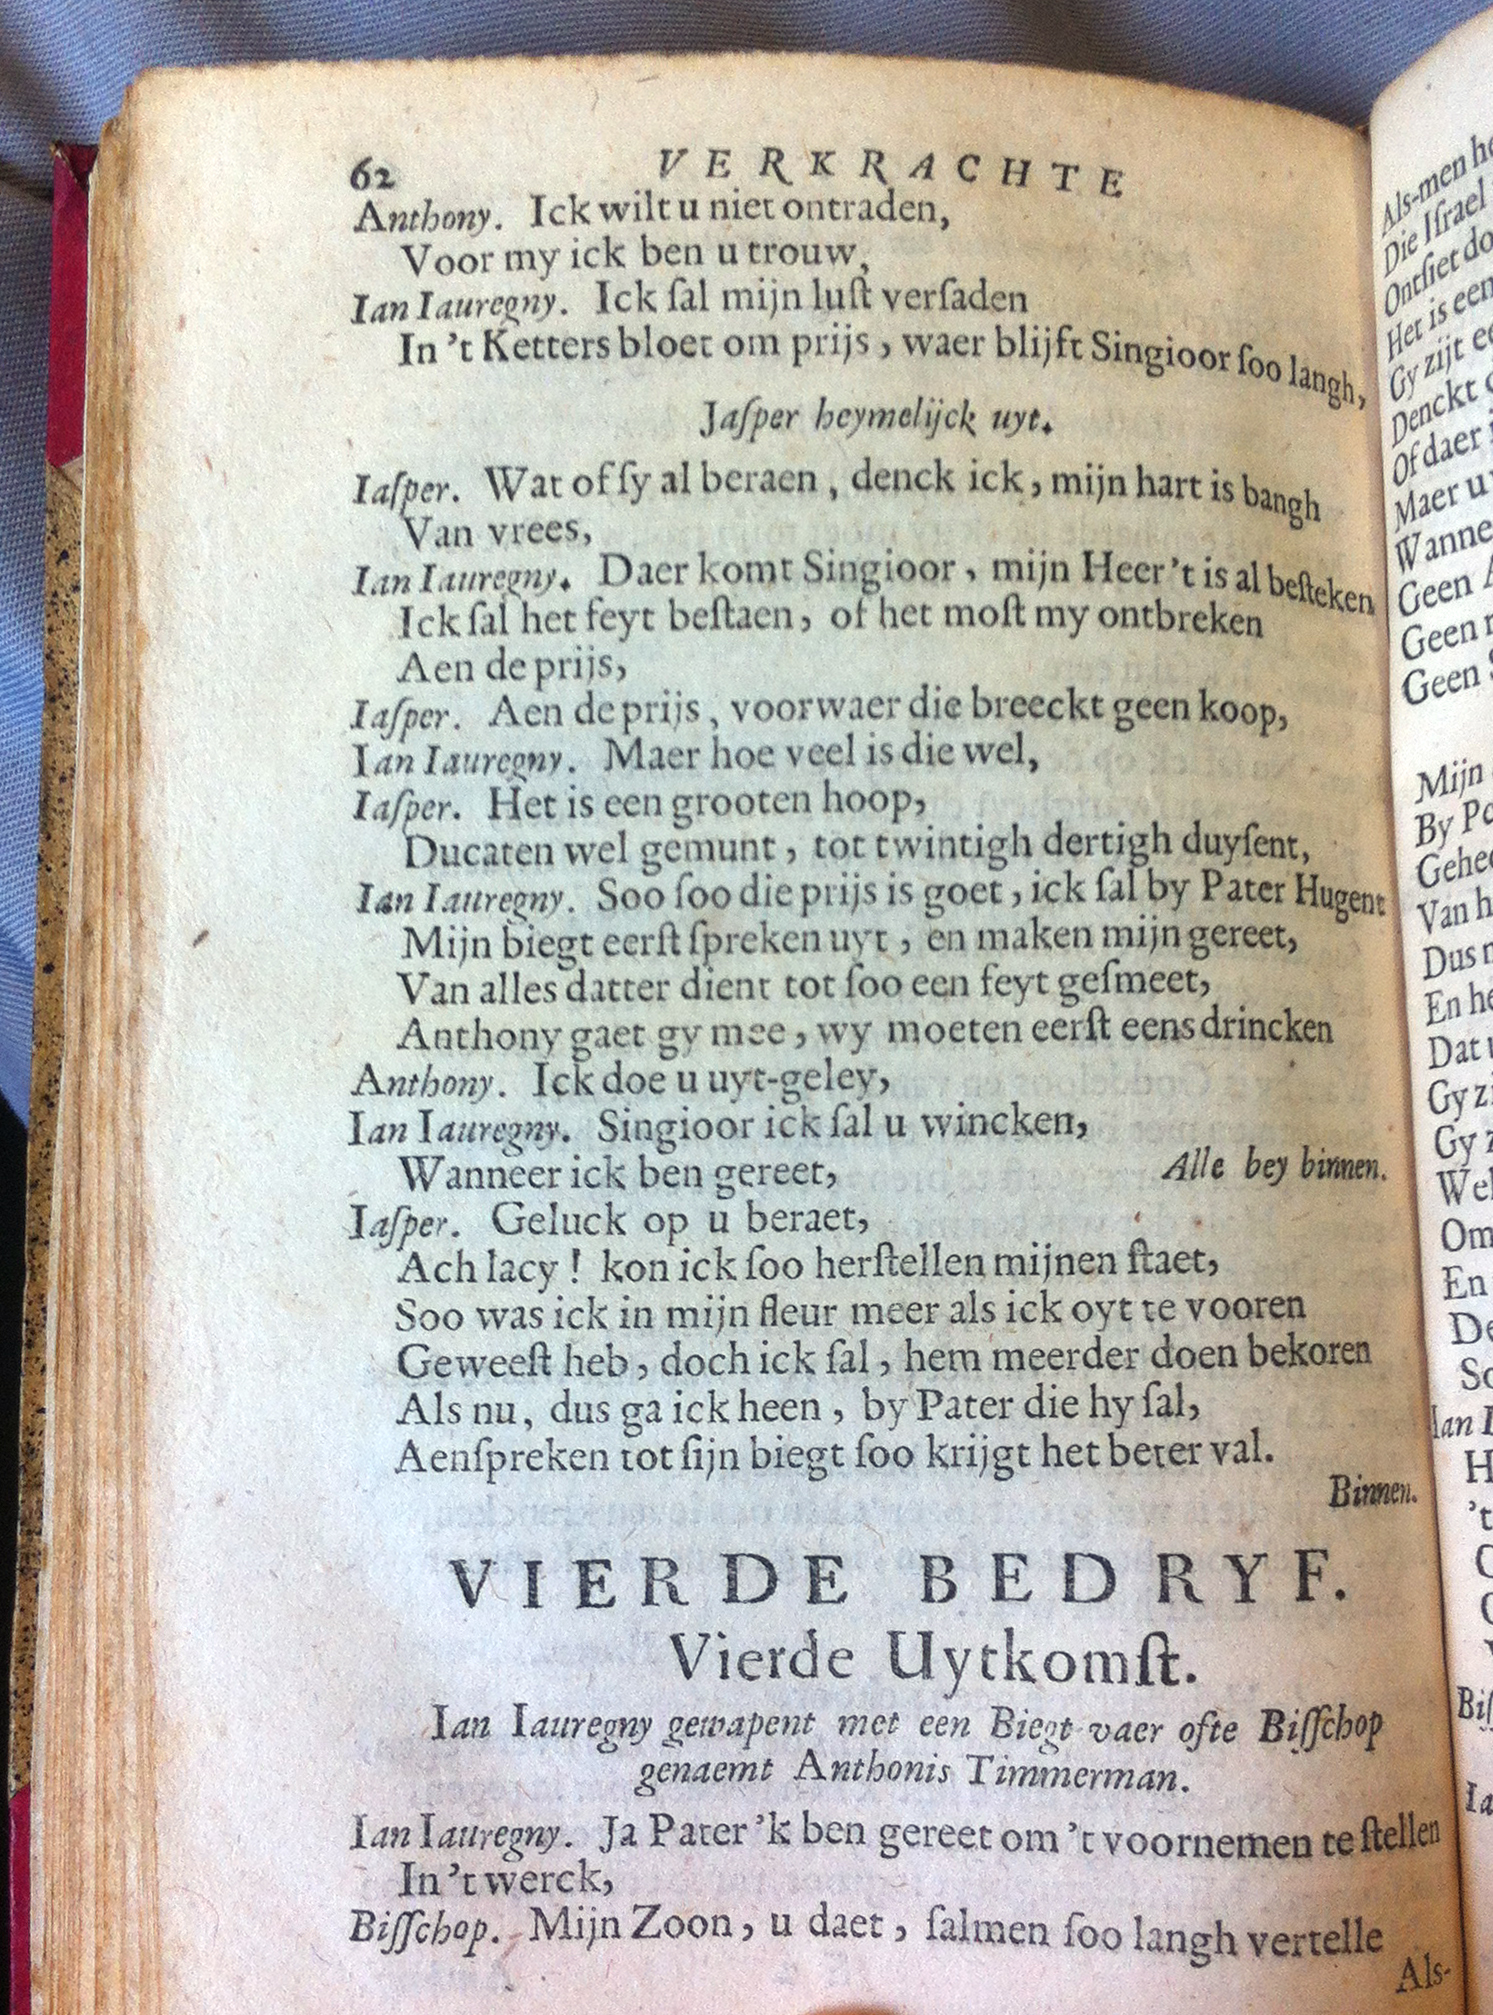 62 VERKRACHTE
Anthony. Ick wilt u niet ontraden,
Voor my ick ben u trouw,
Ian Iauregny. Ick ſal mijn luſt verſaden
In 't Ketters bloet om prijs, waer blijft Singioor ſoo langh,
Jaſper heymelijck uyt.
Iaſper. Wat of ſy al beraen, denck ick, mijn hart is bangh
Van vrees,
Ian Iauregny. Daer komt Singioor, mijn Heer 't is al beſteken
Ick ſal het feyt beſtaen, of het moſt my ontbreken
Aen de prijs,
Iaſper. Aen de prijs, voorwaer die breeckt geen koop,
Ian Iauregny. Maer hoe veel is die wel,
Iaſper. Het is een grooten hoop,
Ducaten wel gemunt, tot twintigh dertigh duyſent,
Ian Iauregny. Soo ſoo die prijs is goet, ick ſal by Pater Hugent
Mijn biegt eerſt ſpreken uyt, en maken mijn gereet,
Van alles datter dient tot ſoo een feyt geſmeet,
Anthony gaet gy mee, wy moeten eerſt eens drincken
Anthony. Ick doe u uyt-geley,
Ian Iauregny. Singioor ick ſal u wincken,
Wanneer ick ben gereet, Alle bey binnen.
Iaſper. Geluck op u beraet,
Ach lacy! kon ick ſoo herſtellen mijnen ſtaet,
Soo was ick in mijn fleur meer als ick oyt te vooren
Geweeſt heb, doch ick ſal, hem meerder doen bekoren
Als nu, dus ga ick heen, by Pater die hy ſal,
Aenſpreken tot ſijn biegt ſoo krijgt het beter val.
Binnen.
VIERDE BEDRYF.
Vierde Uytkomſt.
Ian Iauregny gewapent met een Biegt-vaer ofte Biſſchop
genaemt Anthonis Timmerman.
Ian Iauregny. Ja Pater 'k ben gereet om 't voornemen te ſtellen
In 't werck,
Biſſchop. Mijn Zoon, u daet, ſalmen ſoo langh vertelle
Als-
Als-men
Die Iſrael
Ontſiet
Het is een
Gy zijt
Denckt
Of daer
Maer
Wanne
Geen
Geen
Geen
Mijn
By
Gehe
Van
Dus
En
Dat
Gy
Gy
Wel
Om
En